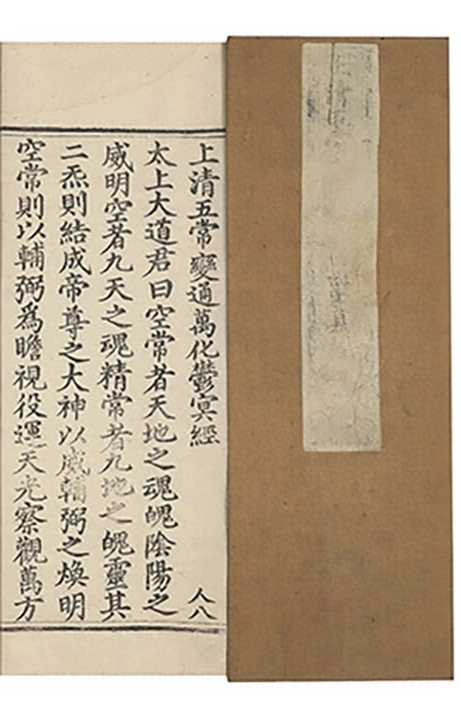 上清五常變通萬化鬱㝠經
人八
太上大道君曰空常者天地之魂魄陰陽之
威明空者九天之魂精常者九地之魄靈其
二炁則結成帝尊之大神以威輔弼之煥明
空常則以輔弼為瞻視役運天光察觀萬方